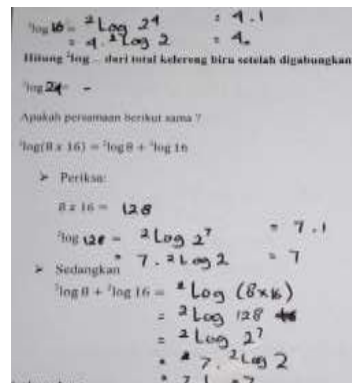 ²log 16 = ²Log 2⁴ = 4.1
= 4. ²Log 2 = 4.
Hitung ²log ... dari total kelereng biru setelah digabungkan
²log 24 -
Apakah persamaan berikut sama ?
²log(8 x 16) = ²log 8 + ²log 16
➢ Periksa:
8 x 16 = 128
²log 128 = ²Log 2⁷ = 7.1
= 7. ²Log 2 = 7
➢ Sedangkan
²log 8 + ²log 16 = ²Log (8x16)
= ²Log 128
= ²Log 2⁷
= 7. ²Log 2